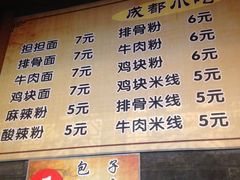 成都小吃
担担面 7元
排骨面 7元
牛肉面 7元
鸡块面 7元
麻辣粉 5元
酸辣粉 5元
排骨粉 6元
牛肉粉 6元
鸡块粉 6元
鸡块米线 5元
排骨米线 5元
牛肉米线 5元
包子